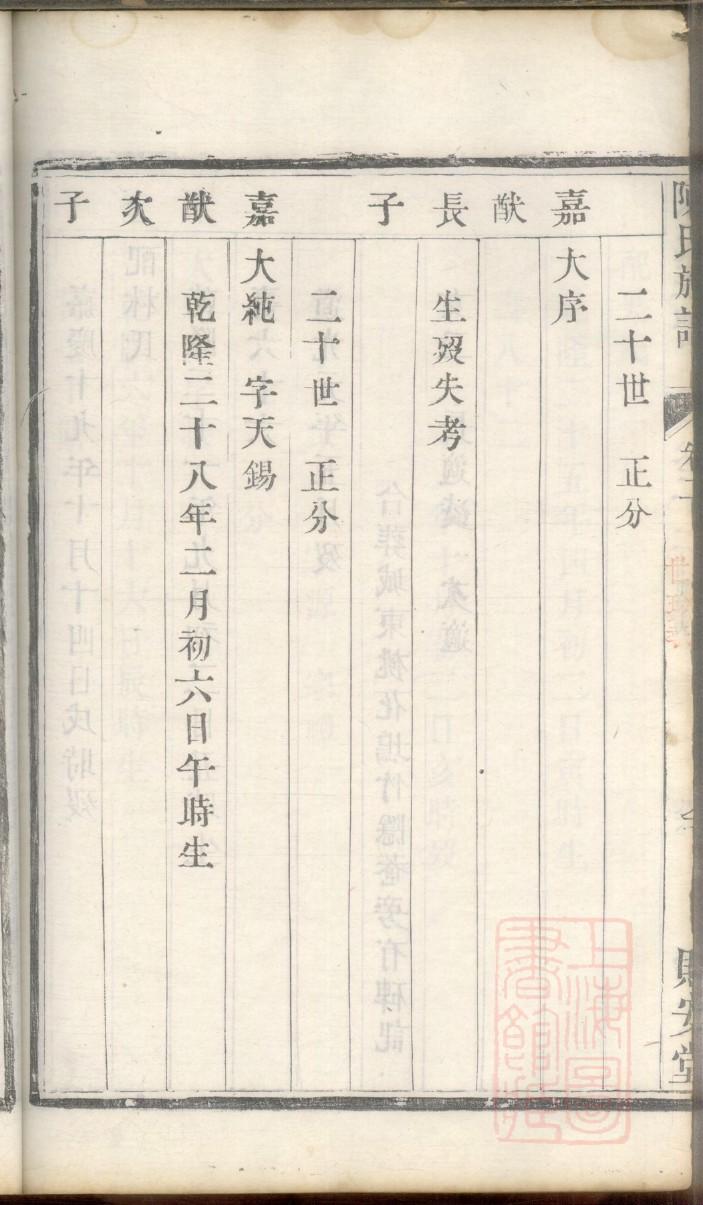 陳氏族譜
卷二
則安堂
二十世 正分
嘉 大序
猷
長 生歿失考
子
二十世 正分
嘉 大純 字天錫
猷 乾隆二十八年二月初六日午時生
次
子
上海圖書館藏